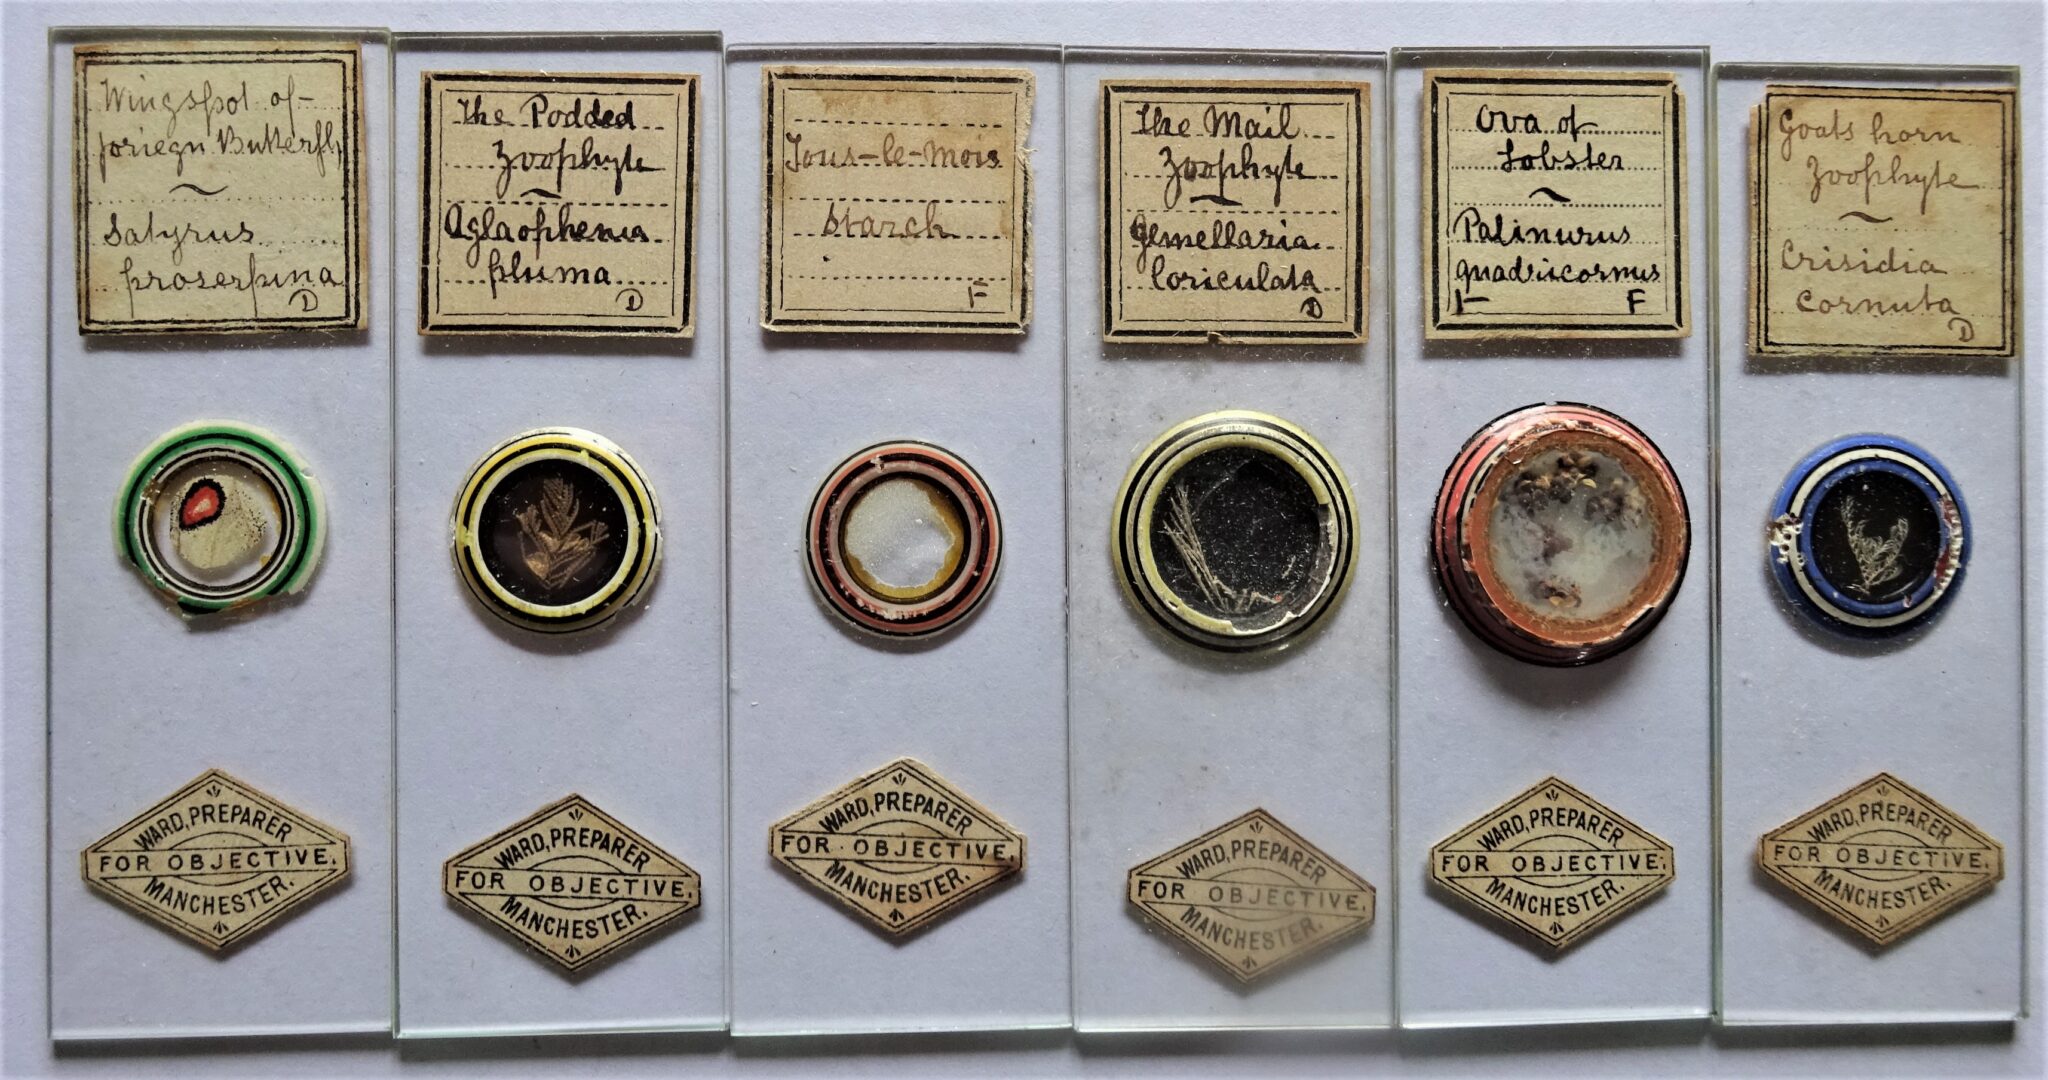 Wingspot of
foriegn Butterfly
Satyrus
proserpina
D
WARD, PREPARER
FOR OBJECTIVE.
MANCHESTER.
The Podded
Zoophyte
Aglaophenia
pluma
D
WARD, PREPARER
FOR OBJECTIVE.
MANCHESTER.
Tous-le-Mois
Starch
F
WARD, PREPARER
FOR OBJECTIVE.
MANCHESTER.
The Mail
Zoophyte
Gemellaria
loriculata
D
WARD, PREPARER
FOR OBJECTIVE.
MANCHESTER.
Ova of
Lobster
Palinurus
quadricornus
F F
WARD, PREPARER
FOR OBJECTIVE.
MANCHESTER.
Goats horn
Zoophyte
Crisidia
cornuta
D
WARD, PREPARER
FOR OBJECTIVE.
MANCHESTER.